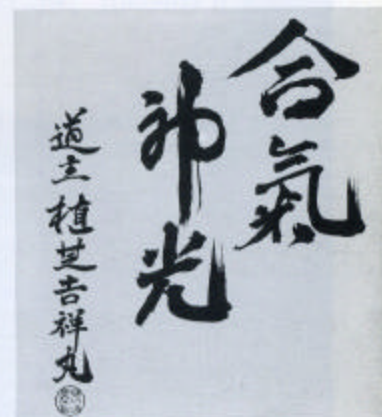 合氣
神光
道主植芝吉祥丸